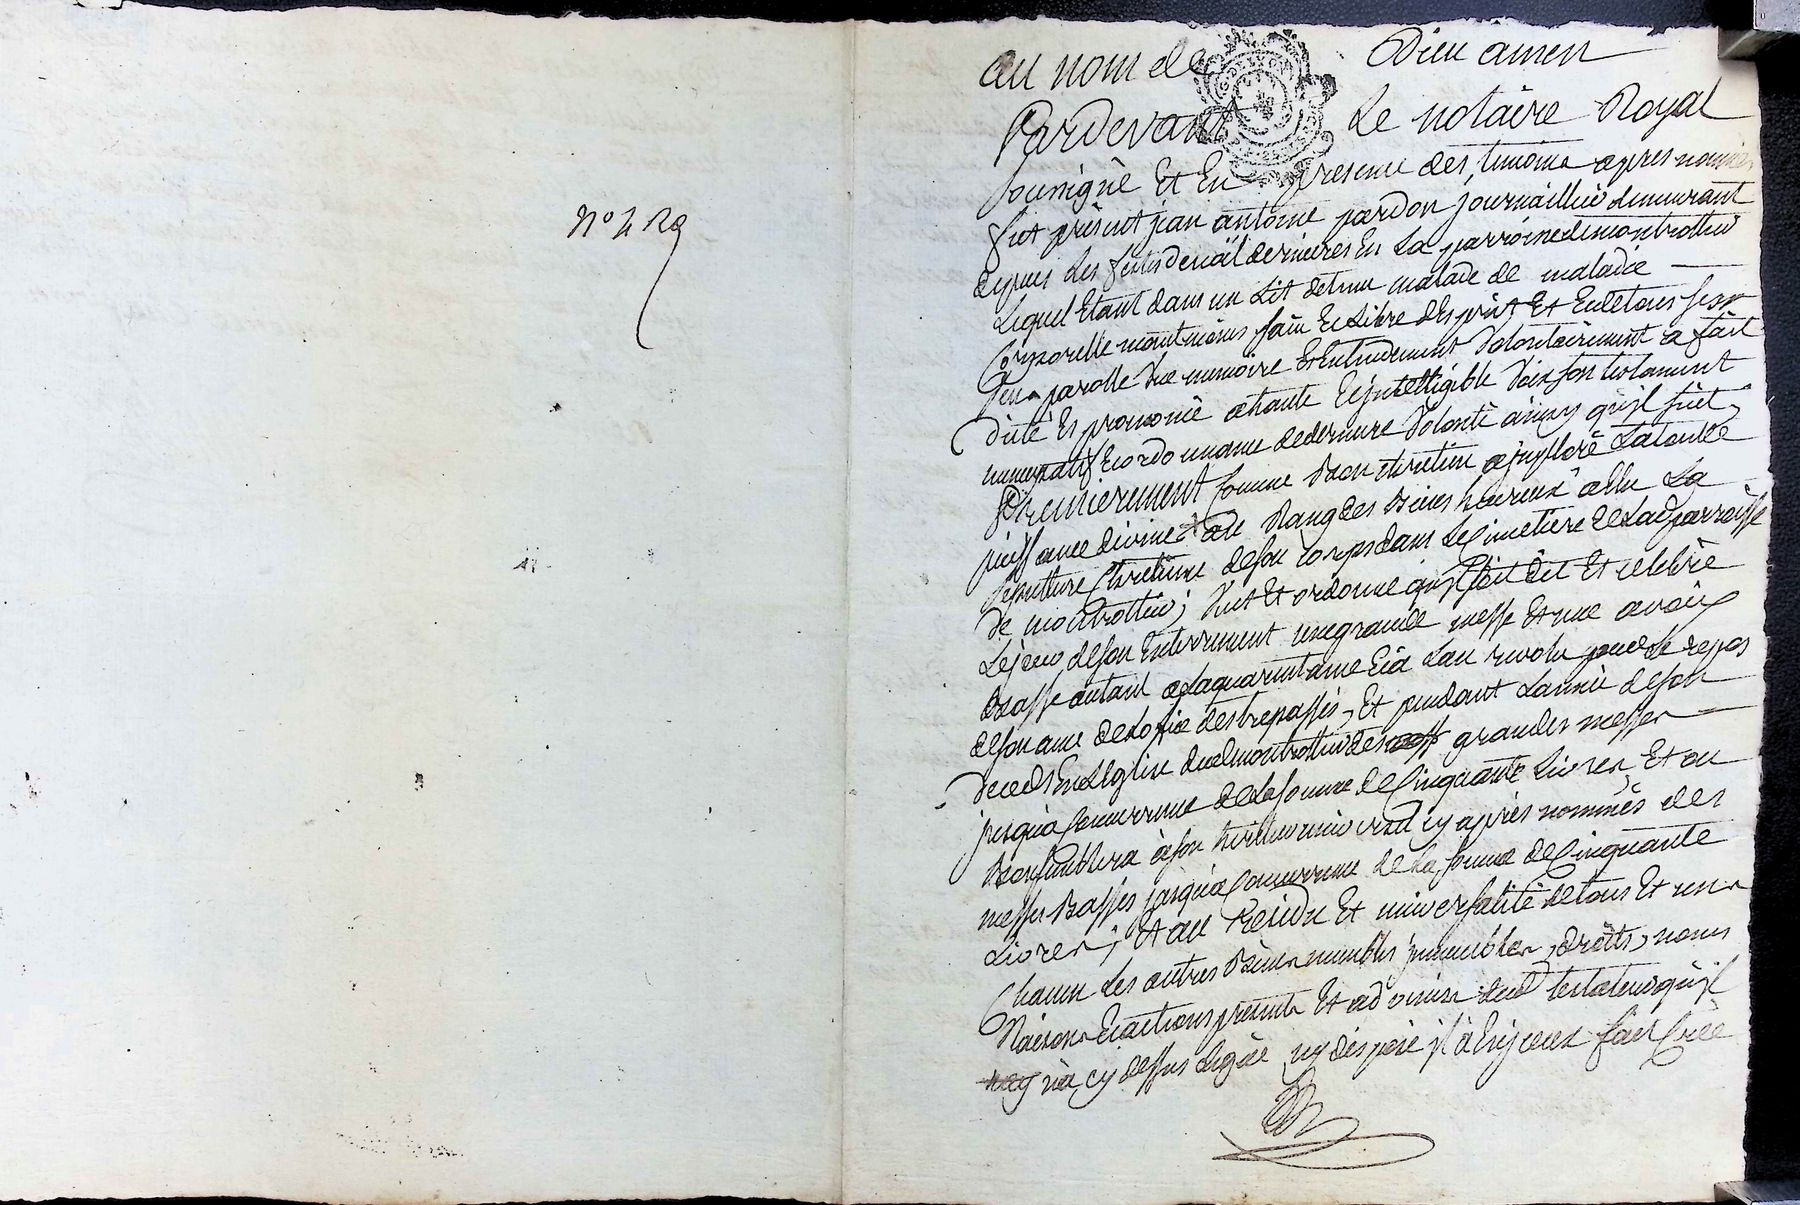 N° 4 Rg
au nom de Dieu amen
Pardevant Le notaire Royal
soussigné Et En presence des temoins apres nommés
fut présent jean antoine pardon journaillier demeurant
depuis Les festes de noël dernieres En La parroisse de montrottier
Lequel Etant dans un Lit detenu malade de maladie
Corporelle neantmoins sain Et Libre desprit Et En Et tous ses
sens parolle vue memoire Et Entendement volontairement a fait
dicté Et prononcé a haute Et jntelligible voix son testament
nuncupatif Et ordonnance de derniere volonté ainsy qu'jl suit,
Premierement Comme bon chretien a jmploré La toute
puissance divine au Rang des biens heureux ellu La
sepulture Chretienne de son corps dans Le Cimetiere de Lad parroisse
de montrottier; veut Et ordonne qu'jl soit dit Et celebré
Le jour de son Enterrement une grande messe Et une a voix
basse autant a La quarantaine Et a Lan revolu pour Le repos
de son ame de Lofice des trepassés, Et pendant Lannée de son
deceds En Leglise dud montrottier des grandes messes
jusqua Concurrence de La somme de Cinquante Livres, Et ou
bon semblera a son heritier universel cy après nommés des
messes Basses jusqua Concurrence de La somme de Cinquante
Livres; Et au Residu Et universalité de tous Et uns
Chacun Les autres biens meubles jmmeubles, droits, noms
Raisons Et actions presents Et advenir dud testateur qu'jl
n'a cy dessus Legué ny disposé jl a En jceux fait Créé